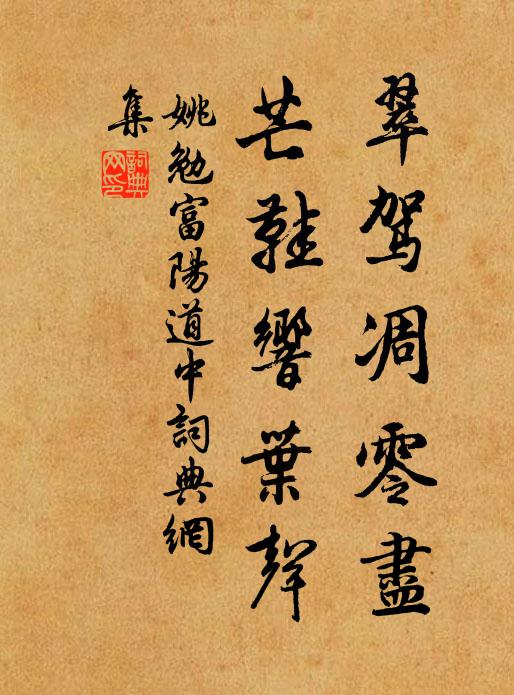 翠駕凋零盡
芒鞋響葉聲
姚勉富陽道中詞典網
集
詞典
网印